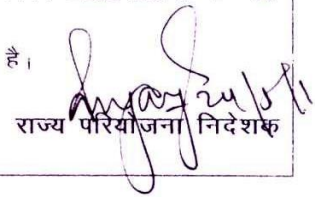 है।
राज्य परियोजना निदेशक